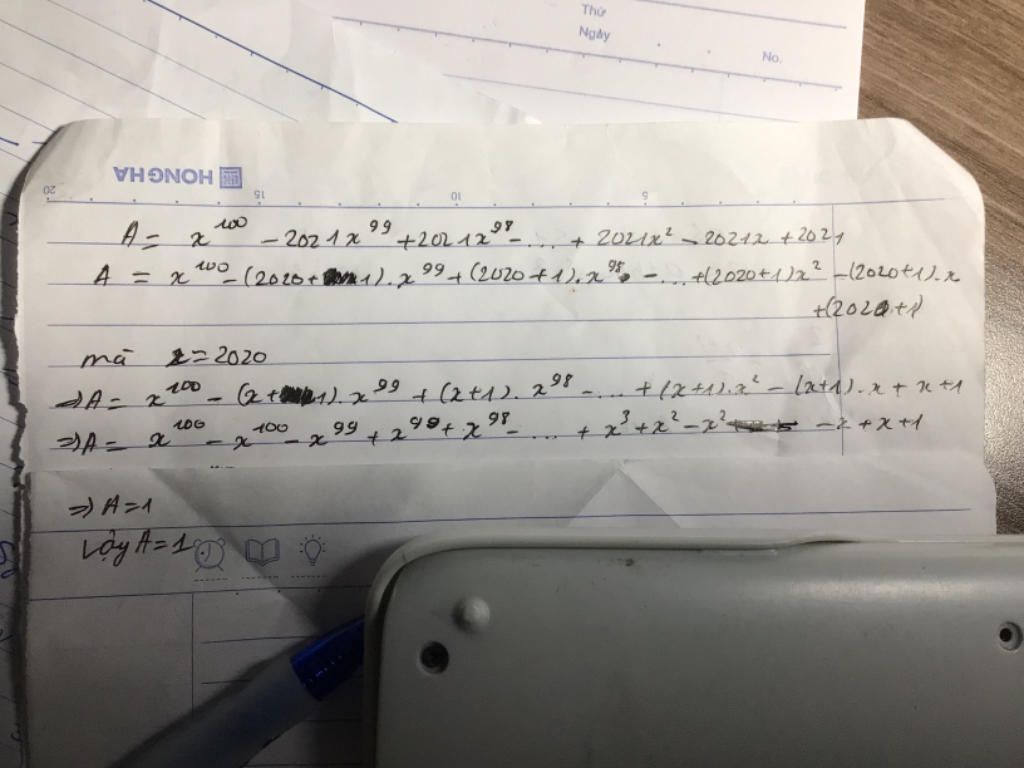 Thứ
Ngày
No.
HONG HA
20 15 10 5
A = x^100 - 2021x^99 + 2021x^98 - ... + 2021x^2 - 2021x + 2021
A = x^100 - (2020 + 1).x^99 + (2020+1).x^98 - ... + (2020+1)x^2 - (2020+1).x
+(2020+1)
mà x = 2020
=> A = x^100 - (x+1).x^99 + (x+1).x^98 - ... + (x+1).x^2 - (x+1).x + x+1
=> A = x^100 - x^100 - x^99 + x^99 + x^98 - ... + x^3 + x^2 - x^2 - x + x + 1
=> A = 1
Vậy A = 1